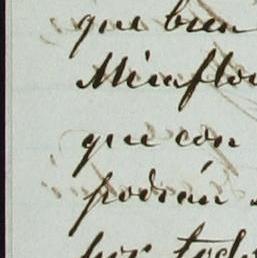 que bien
Miraflo
que con
podrán
por tod